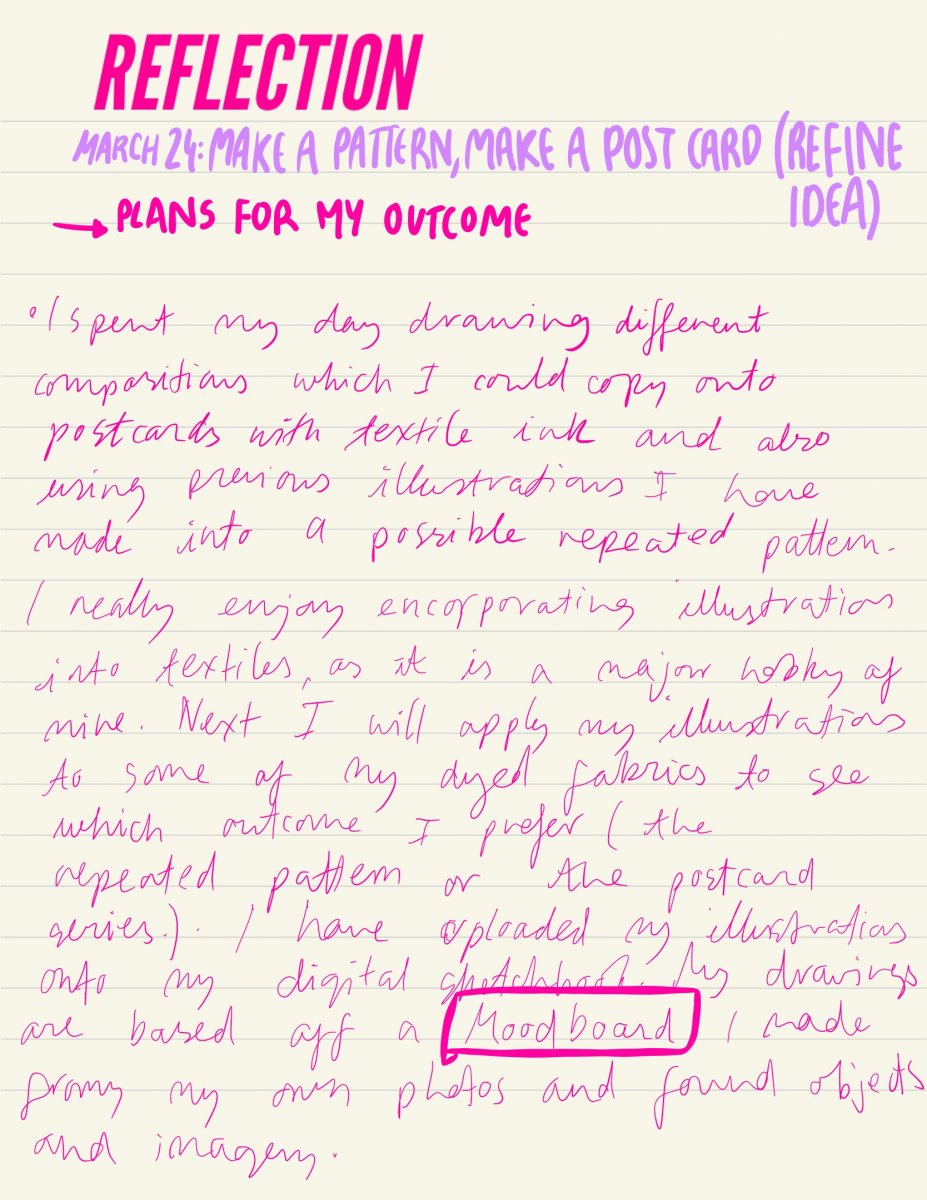 REFLECTION
MARCH 24: MAKE A PATTERN, MAKE A POST CARD (REFINE
IDEA)
→ PLANS FOR MY OUTCOME
• I spent my day drawing different
compositions which I could copy onto
postcards with textile ink and also
using previous illustrations I have
made into a possible repeated pattern.
I really enjoy encorporating illustration
into textiles, as it is a major hobby of
mine. Next I will apply my illustrations
to some of my dyed fabrics to see
which outcome I prefer (the
repeated pattern or the postcard
series.). I have uploaded my illustrations
onto my digital sketchbook. My drawings
are based off a Moodboard I made
from my own photos and found objects
and imagery.